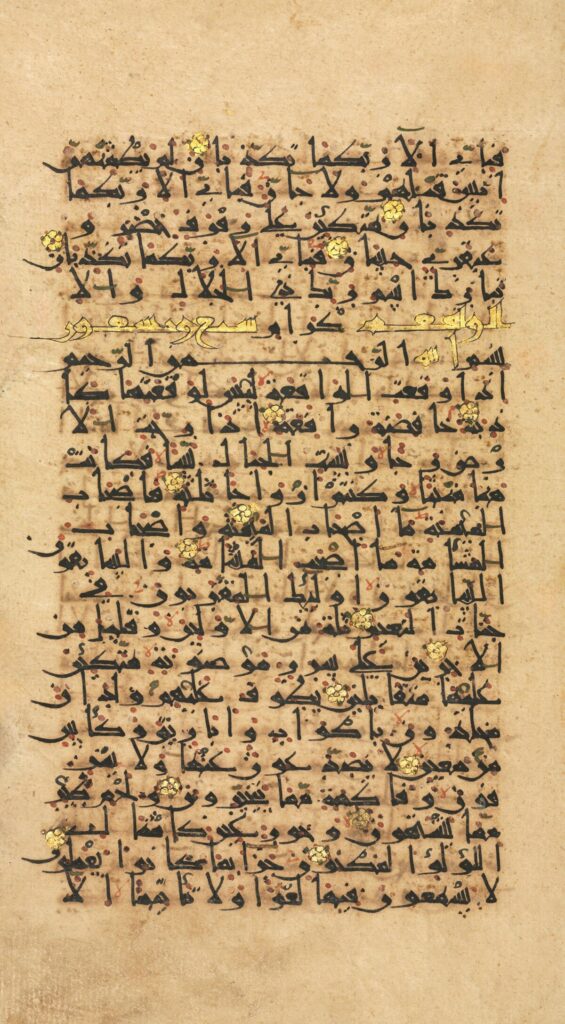 فباي الا ربكما تكذبان لم يطمثهن
انس قبلهم ولا جان فباي الا ربكما
تكذبان متكئين على رفرف خضر و
عبقري حسان فباي الا ربكما تكذبان
تبارك اسم ربك ذي الجلال والا
الواقعة كرام سبع وتسعون
بسم الله الرحمن الرحيم
اذا وقعت الواقعة ليس لوقعتها كا
ذبة خافضة رافعة اذا رجت الا
رض رجا وبست الجبال بسا فكانت
هبا منبثا وكنتم ازواجا ثلثة فاصحاب
الميمنة ما اصحاب الميمنة واصحاب
المشامة ما اصحب المشامة والسابقون
السابقون اولئك المقربون في
جنات النعيم ثلة من الاولين وقليل من
الاخرين على سرر موضونة متكئين
عليها متقابلين يطوف عليهم ولدان
مخلدون باكواب واباريق وكاس
من معين لا يصدعون عنها ولا ينز
فون وفاكهة مما يتخيرون ولحم طير
مما يشتهون وحور عين كامثال
اللولوا المكنون جزا بما كانوا يعملون
لا يسمعون فيها لغوا ولا تاثيما الا